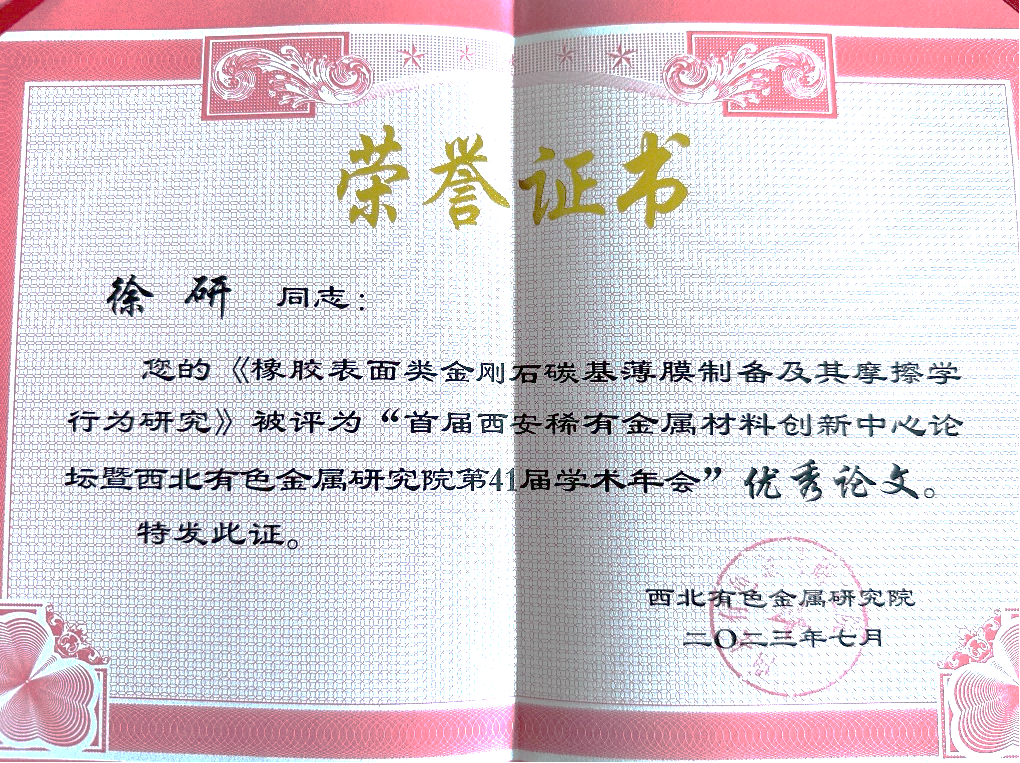 荣誉证书
徐研 同志：
您的《橡胶表面类金刚石碳基薄膜制备及其摩擦学
行为研究》被评为“首届西安稀有金属材料创新中心论
坛暨西北有色金属研究院第41届学术年会”优秀论文。
特发此证。
西北有色金属研究院
二〇二三年七月